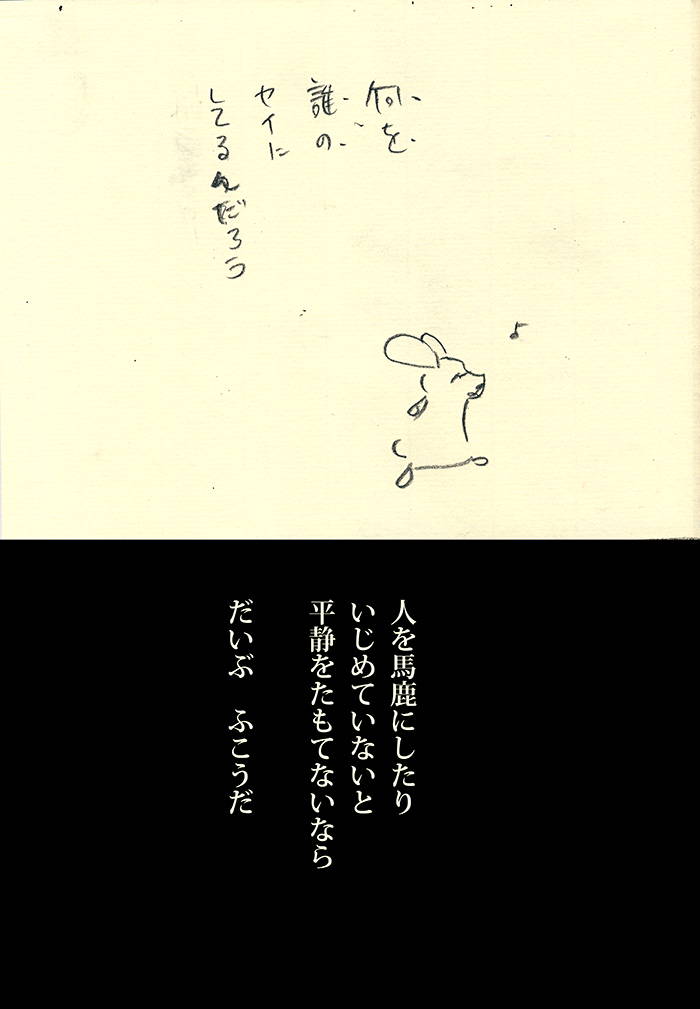 何を
誰の
セイに
してるんだろう
人を馬鹿にしたり
いじめていないと
平静をたもてないなら
だいぶ　ふこうだ